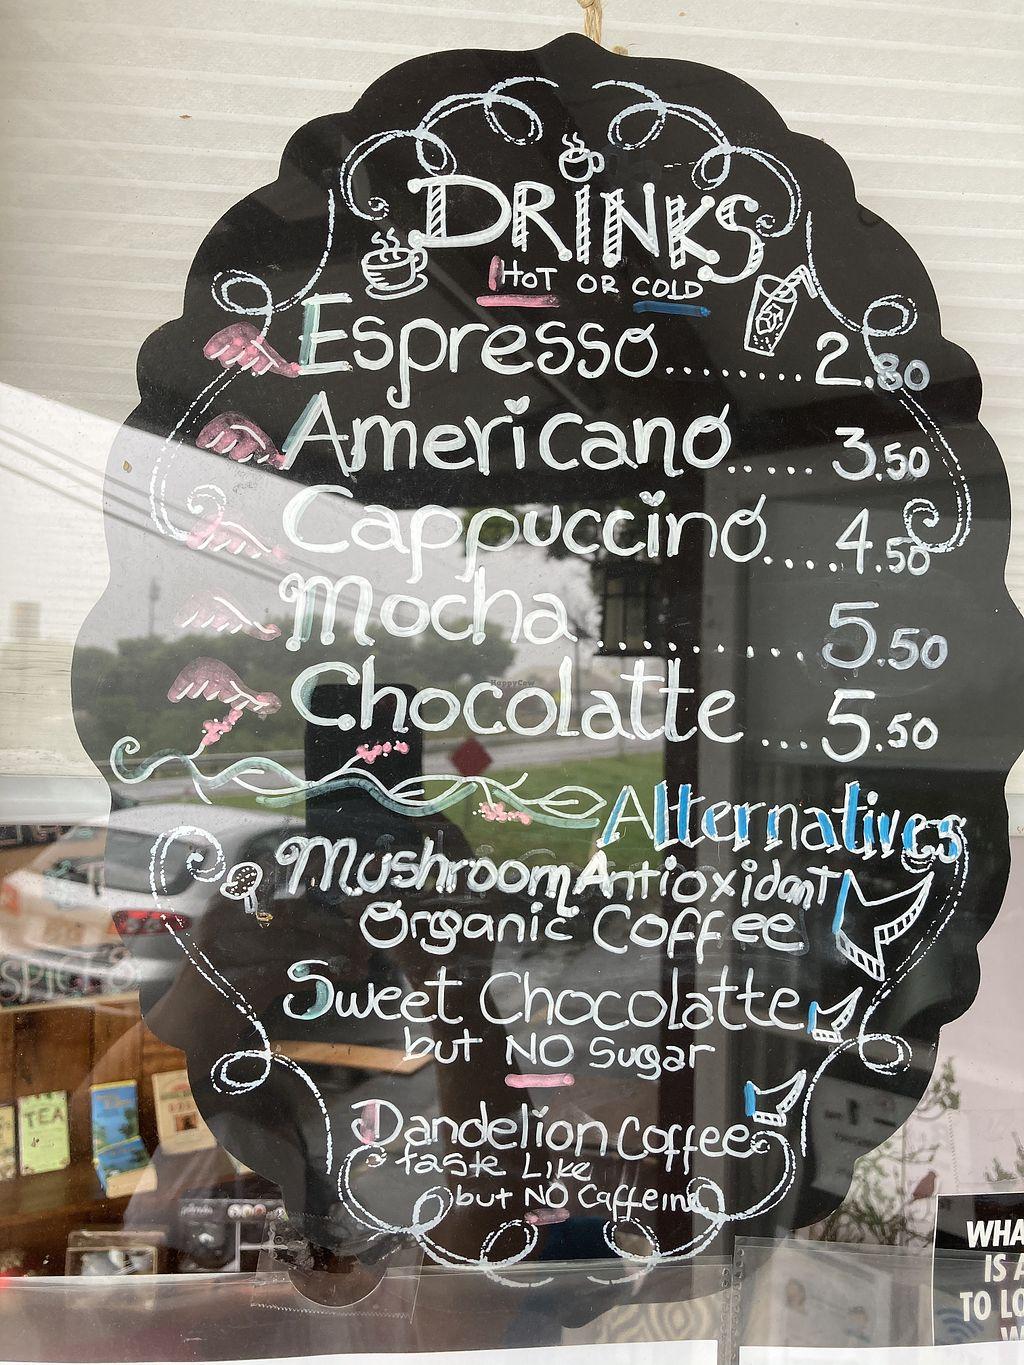 DRINKS
HOT OR COLD
Espresso........2.80
Americano.....3.50
Cappuccino....4.50
Mocha..........5.50
Chocolatte...5.50
HappyCow
Alternatives
Mushroom Antioxidant
Organic Coffee
Sweet Chocolatte
but NO Sugar
Dandelion Coffee
taste Like
but NO Caffeine
SPICES
TEA
WHA
IS A
TO LO
W